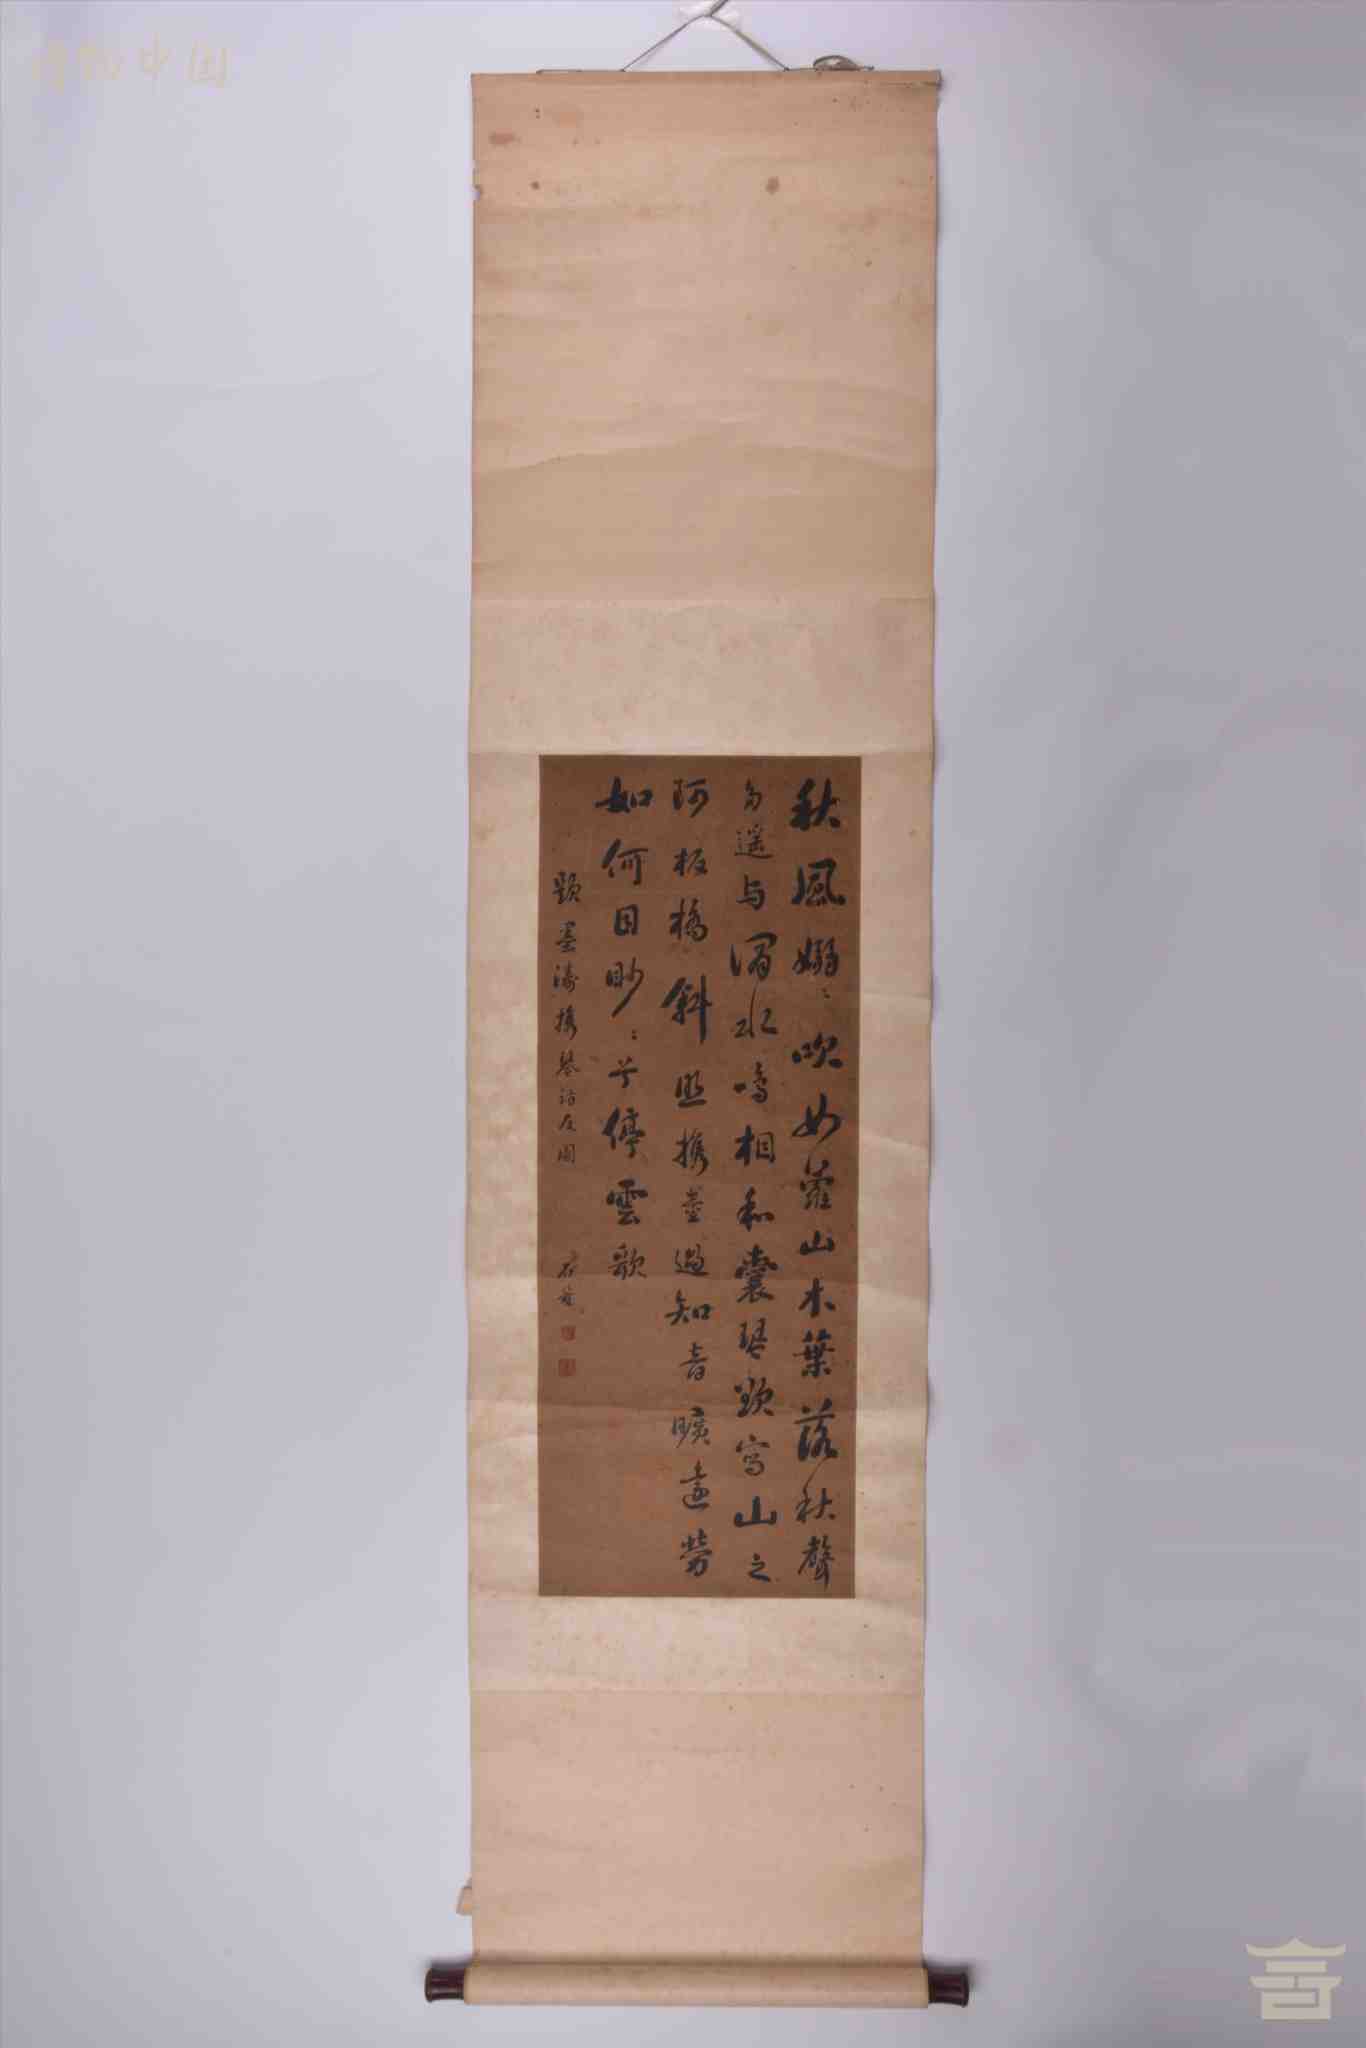 秋風嫋〻吹女蘿山木葉落秋聲
多遥与澗水鳴相和囊琴欲寫山之
阿板橋斜照攜壺過知音曠遠勞
如何目眇〻兮停雲歌
題墨濤攜琴訪友圖
博物中国